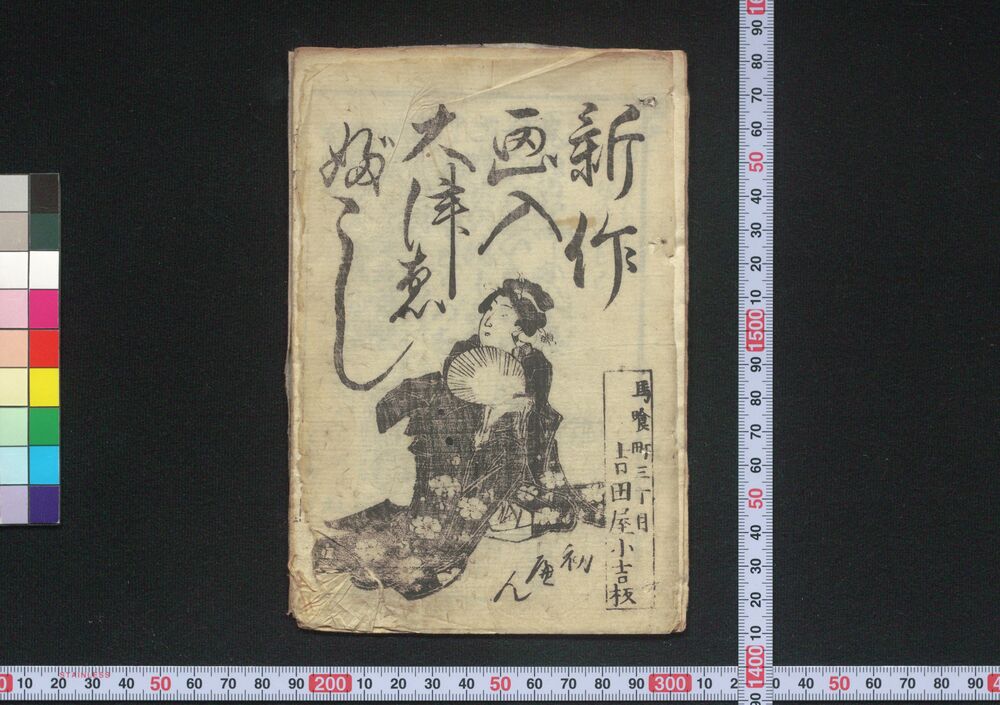 新作
画入
大津恵
ぶし
馬喰町三丁目
吉田屋小吉板
初
へん
STAINLESS
0 10 20 30 40 50 60 70 80 90 200 10 20 30 40 50 60 70 80 90 300 10
0 30 40 50 60 70 80 90
90 80 70 60 50 40 30 20 10 1500 90 80 70 60 50 40 30 20 10 1400 90